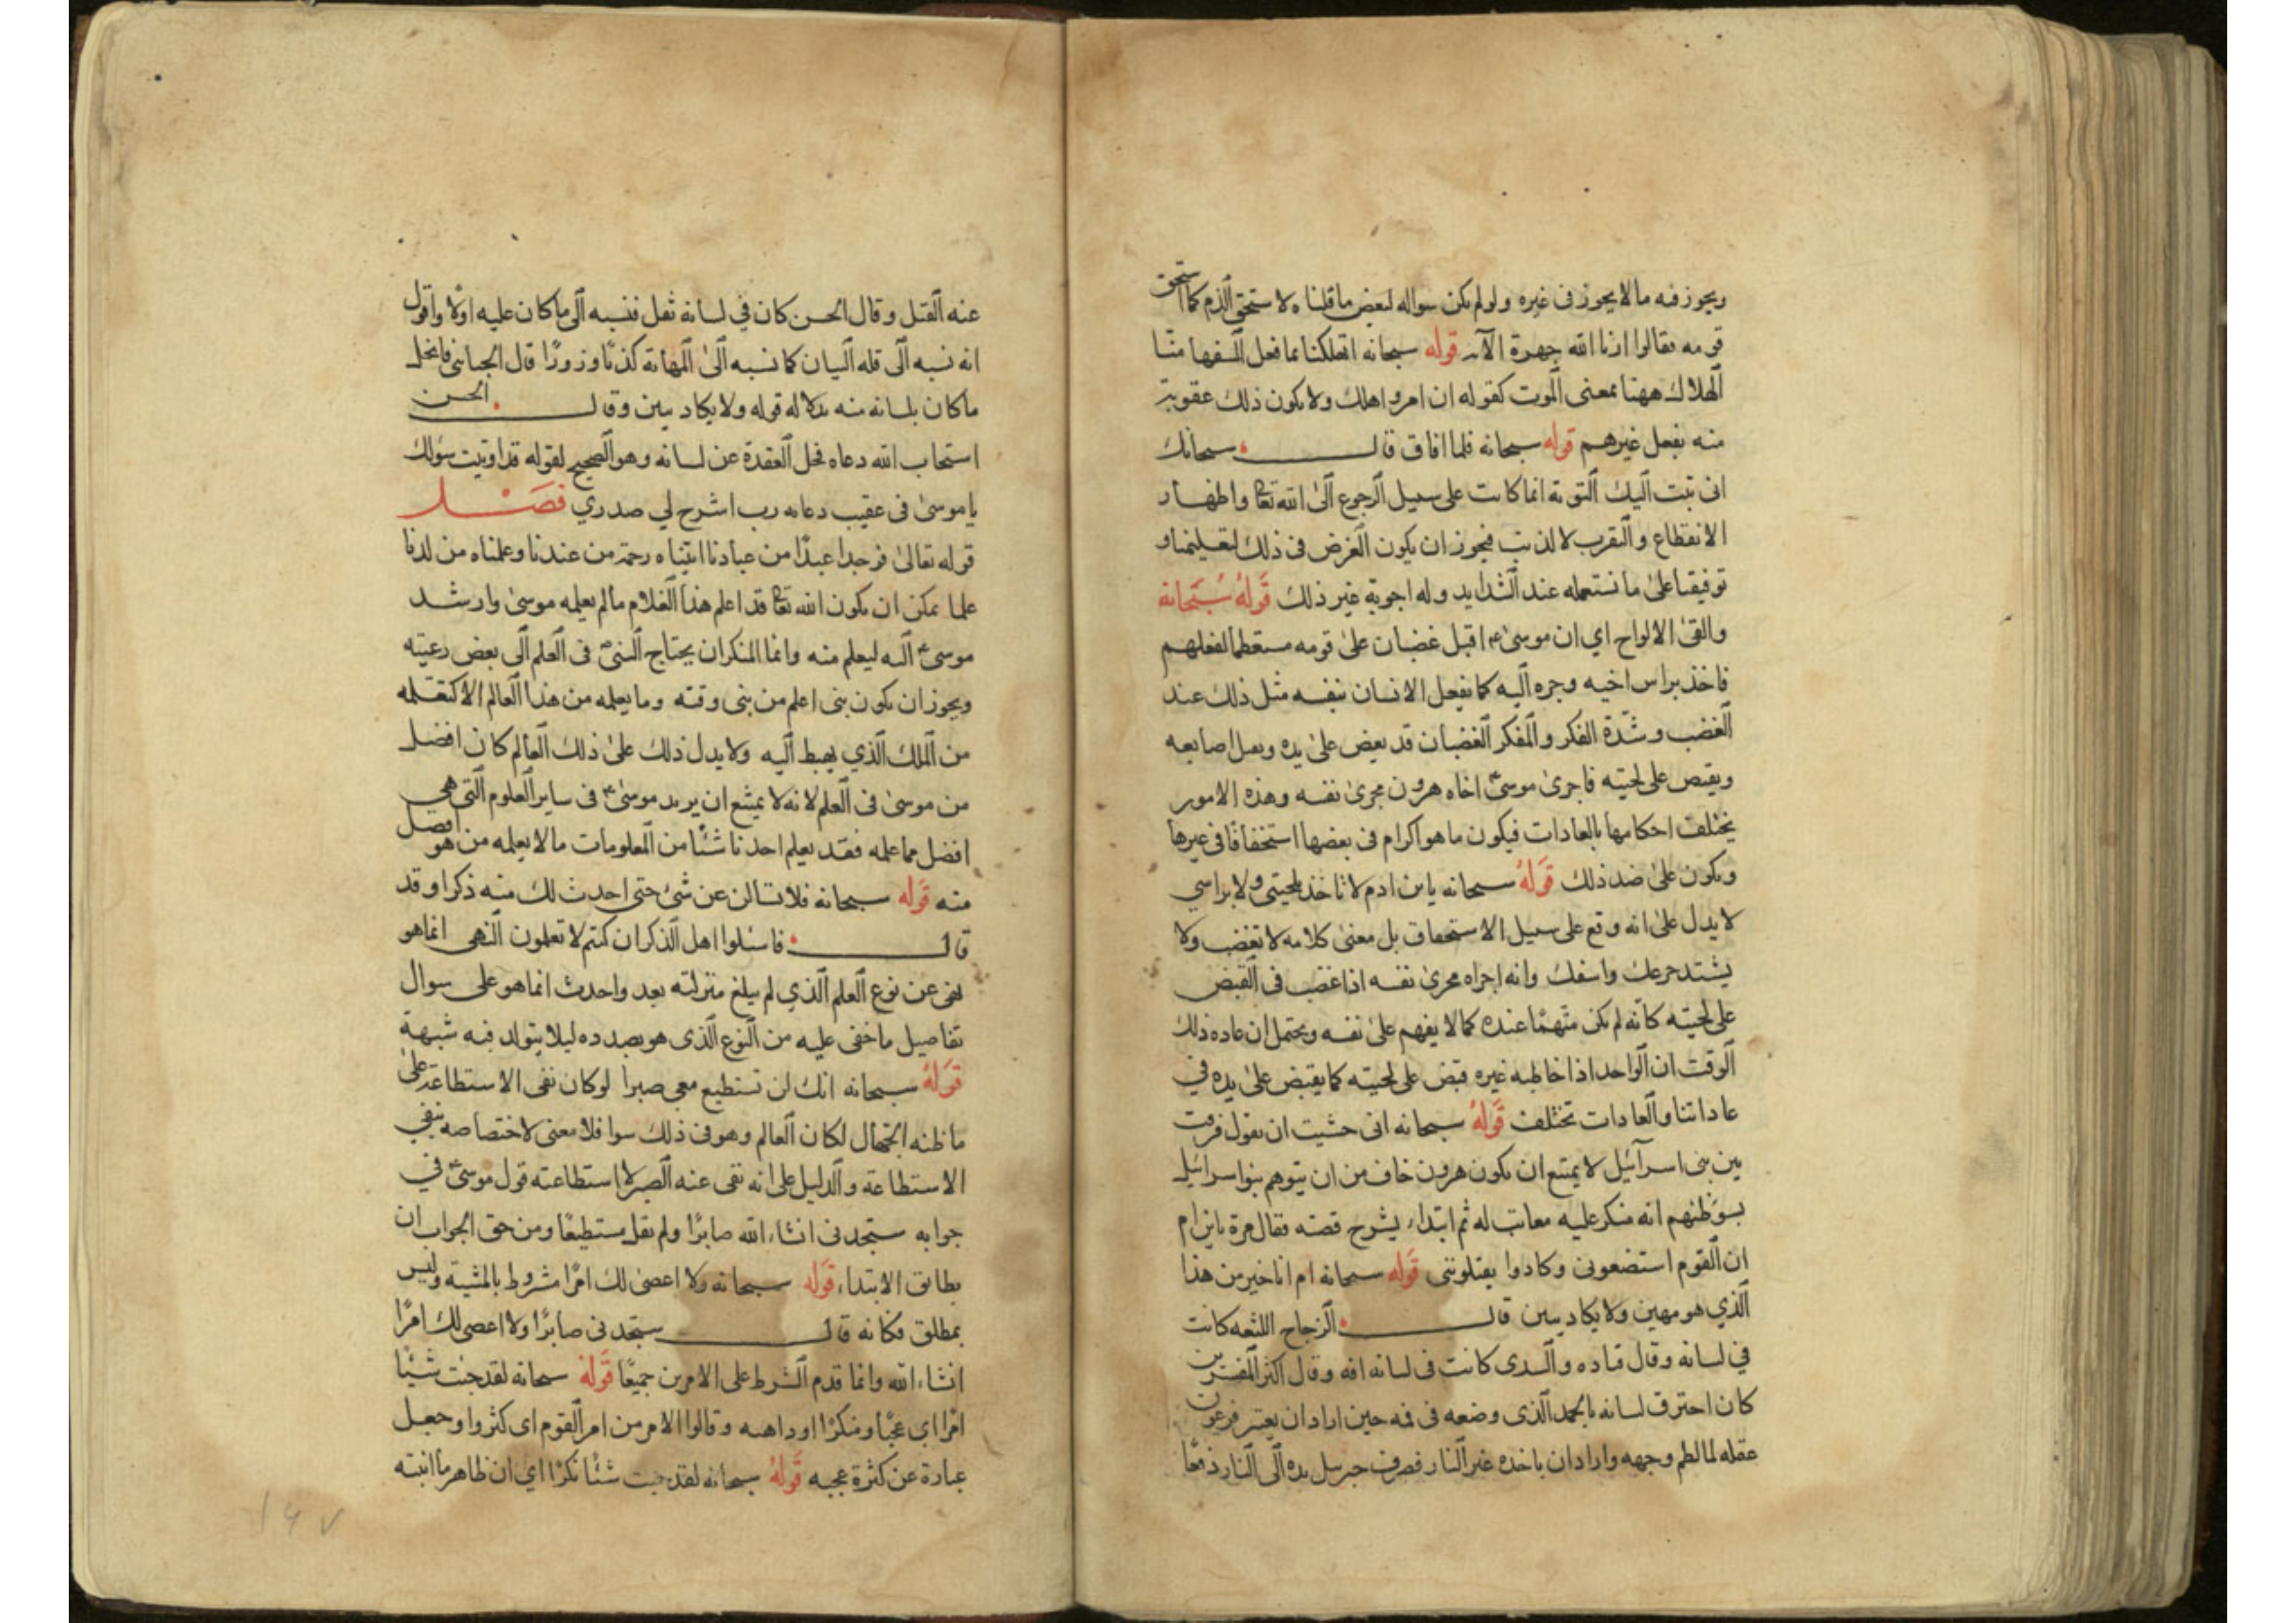 ويجوز فيه ما لا يجوز فى غيره ولو لم يكن سواله لبعض ما قلناه لاستحق الذم كما استحق
قومه فقالوا ارنا الله جهرة الآية قوله سبحانه اتهلكنا بما فعل السفها منّا
الهلاك ههنا بمعنى الموت كقوله ان امرو اهلك ولا يكون ذلك عقوبة
منه بفعل غيرهم قوله سبحانه فلما افاق قال سبحانك
انى تبت اليك التوبة انما كانت على سبيل الرجوع الى الله تعا واظهار
الانقطاع والتقرب لا لذنب فيجوز ان يكون الغرض فى ذلك لتعليمنا و
توفيقنا على ما نستعمله عند الشدايد وله اجوبة غير ذلك قوله سبحانه
والقى الالواح اي ان موسى ع اقبل غضبان على قومه مستعظما لفعلهم
فاخذ براس اخيه وجره اليه كما يفعل الانسان بنفسه مثل ذلك عند
الغضب وشدّة الفكر والمفكر الغضبان قد يعض على يده اصابعه
ويقبص على لحيته فاجرى موسى ع اخاه هرون مجرى نفسه وهذه الامور
يختلف احكامها بالعادات فيكون ما هو اكرام فى بعضها استخفافا فى غيرها
ويكون على ضد ذلك قوله سبحانه يا بن ادم لا تاخذ بلحيتى ولا براسي
لا يدل على انه وقع على سبيل الاستحفاف بل معنى كلامه لا تغضب ولا
يشتد جزعك واسفك وانه اجراه مجرى نفسه اذا غضب فى القبض
على لحيته كانه لم يكن متهمًا عنده كما لا يفهم على نفسه ويحتمل ان عاده ذلك
الوقت ان الواحد اذا خاطبه غيره قبض على لحيته كما يقبض على يده في
عاداتنا والعادات تختلف قوله سبحانه انى خشيت ان تقول فرقت
بين بنى اسرآئيل لا يمتنع ان يكون هرون خاف من ان يتوهم بنو اسرائيل
بسؤظنهم انه منكر عليه معاتب له ثم ابتداء يشرح قصته فقال مرة يا بن ام
ان القوم استضعونى وكادوا يقتلوننى قوله سبحانه ام انا خير من هذا
الذي هو مهين ولا يكاد يبين قال الزجاج اللثغه كانت
في لسانه وقال قتاده والسدى كانت فى لسانه افه وقال اكثر المفسرين
كان احترق لسانه بالجمر الذى وضعه فى فمه حين اراد ان يعتبر فرعون
عقله لما لطم وجهه واراد ان ياخذه غير النار فصرف جبرييل يده الى النار دفعًا
عنه القتل وقال الحسن كان في لسانه ثقل فنسبه الى ما كان عليه اولا واقول
انه نسبه الى قله البيان كما نسبه الى المهانة كذبًا وزورًا قال الجبائى فانحل
ما كان بلسانه منه بدلاله قوله ولا يكاد يبين وقال الحسن
استجاب الله دعاه فحل العقدة عن لسانه وهو الصحيح لقوله قد اوتيت سؤلك
يا موسى فى عقيب دعايه رب اشرح لي صدري فصل
قوله تعالى فوجدا عبدًا من عبادنا اتيناه رحمة من عندنا وعلمناه من لدنا
علما يمكن ان يكون الله تعا قد اعلم هذا الغلام ما لم يعلمه موسى وارشد
موسى ع اليه ليعلم منه وانما المنكر ان يحتاج النبى فى العلم الى بعض رعيته
ويجوز ان يكون نبى اعلم من نبى وقته وما يعلمه من هذا العالم الا كتعلمه
من الملك الذي يهبط اليه ولا يدل ذلك على ذلك العالم كان افضل
من موسى فى العلم لانه لا يمتنع ان يريد موسى ع فى ساير العلوم التى هي
افضل مما علمه فقد يعلم احدنا شئا من المعلومات ما لا يعلمه من هو افضل
منه قوله سبحانه فلا تسالن عن شئ حتى احدث لك منه ذكرا وقد
قال فاسئلوا اهل الذكر ان كنتم لا تعلمون النهى انما هو
نهى عن نوع العلم الذي لم يبلغ منزلته بعد واحدث انما هو على سوال
تفاصيل ما خفى عليه من النوع الذى هو بصدده ليلا يتولد فيه شبهة
قوله سبحانه انك لن تستطيع معي صبرا لو كان نفى الاستطاعة على
ما ظنه الجهال لكان العالم وهو فى ذلك سوا فلا معنى لاختصاصه بنفي
الاستطاعة والدليل على انه نفى عنه الصبر لا استطاعته قول موسى ع في
جوابه ستجدنى انشاء الله صابرًا ولم يقل مستطيعًا ومن حق الجواب ان
يطابق الابتداء قوله سبحانه ولا اعصى لك امرًا مشروط بالمشية وليس
بمطلق فكانه قال ستجدنى صابرًا ولا اعصى لك امرًا
انشاء الله وانما قدم الشرط على الامرين جميعًا قوله سبحانه لقد جئت شيئا
امرًا اي عجبًا ومنكرًا او داهيه وقالوا الامر من امر القوم اى كثروا وجعل
عبارة عن كثرة عجبه قوله سبحانه لقد جئت شئا نكرًا اي ان ظاهر ما اتيته
۱۴۷